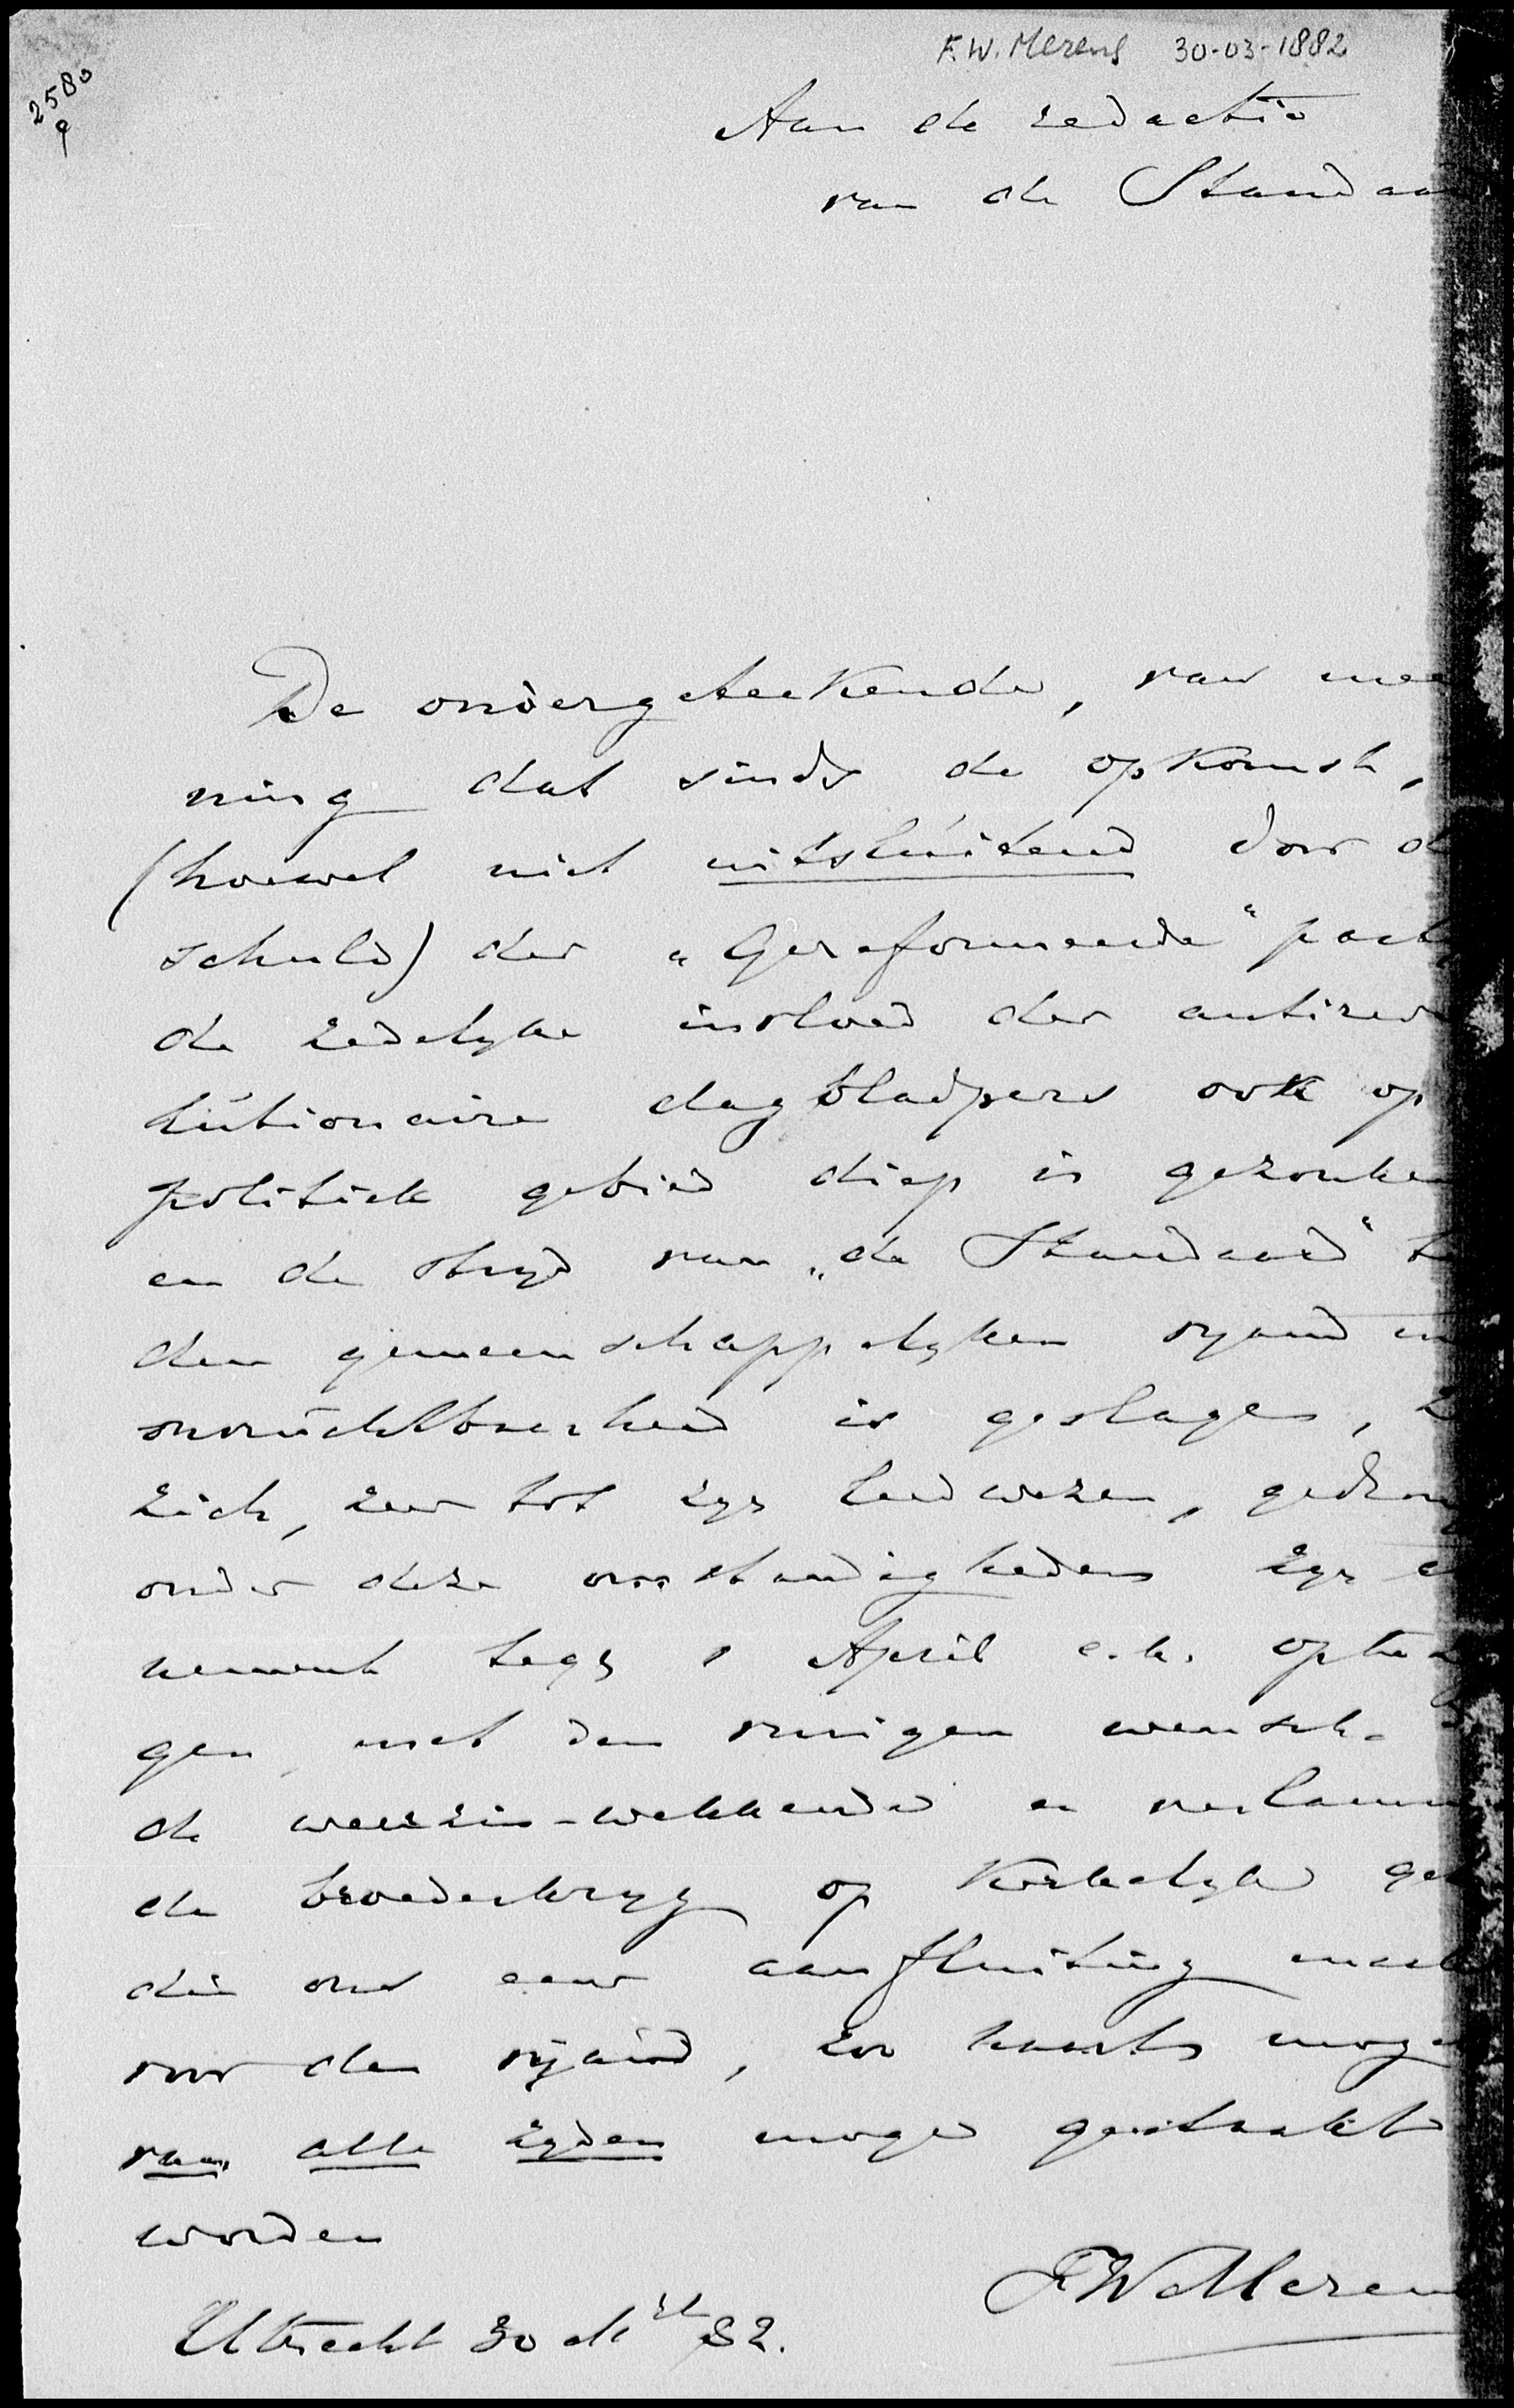 F.W. Merens 30-03-1882
2580
a
Aan de redactie
van de Standaa
De ondergeteekende, van mee
ning dat sinds de opkomst,
(hoewel niet uitsluitend door d
schuld) der „Gereformeerde" party
de zedelyke invloed der antirevo
lutionaire dagbladpers ook op
politiek gebied diep is gezonken
en de stryd van „de Standaard" te
den gemeenschappelyken vyand m
onvruchtbaarheid is geslagen, z
zich, zeer tot zyn leedwezen, gedron
onder deze omstandigheden zyn a
nement tegen 1 April e.k. opteze
gen, met den vurigen wensch
de weerzin-wekkende en verlamm
de broederkryg op Kerkelyk geb
die ons eene aanfluiting maakt
voor den vyand, zoo haast mogel
van alle zyden moge gestaakt
worden
FW Meren
Utrecht 30 Mrt 82.